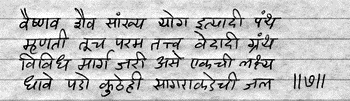 वैष्णव शैव सांख्य योग इत्यादी पंथ
म्हणती तूच परम तत्त्व वेदादी ग्रंथ
विविध मार्ग जरी असे एकची लक्ष्य
धावे पडो कुठेही सागराकडेची जल ॥७॥